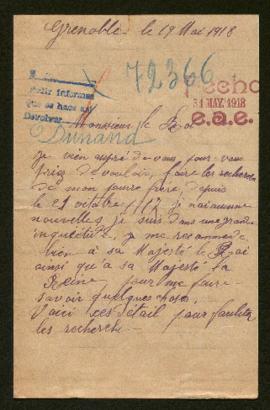 Grenoble le 19 Mai 1918
72366
Hecho
31 MAY. 1918
e.a.e.
Pedir informes
que se hace así
Devolver
Monsieur le Roi
Dunand
Je vien auprès de vous pour vous
priez de vouloir faire les recherche
de mon pauvre frère, depuis
le 21 octobre 1917 je n'ai aucune
nouvelles je suis dans une grande
inquiétude, je me recommende
bien à sa Majesté le Roi
ainsi qu'à sa Majesté la
Reine pour me faire
savoir quelques chose.
Voici ces détail pour faciliter
les recherche